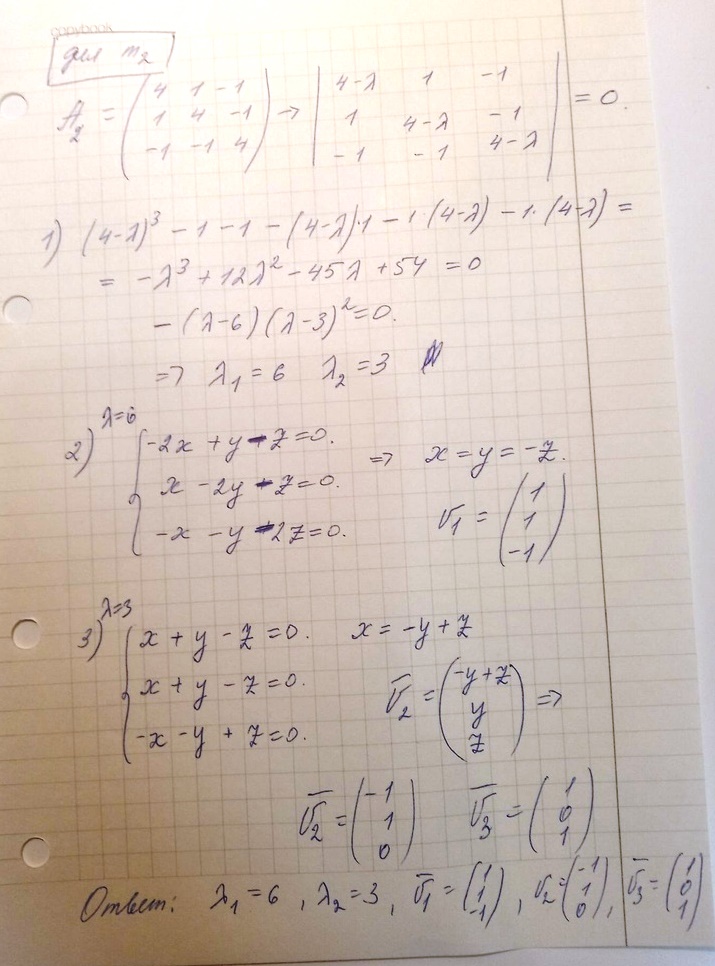 copybook
для m₂
A₂ = (4 1 -1; 1 4 -1; -1 -1 4) → |4-λ 1 -1; 1 4-λ -1; -1 -1 4-λ| = 0.
1) (4-λ)³ - 1 - 1 - (4-λ)·1 - 1·(4-λ) - 1·(4-λ) =
= -λ³ + 12λ² - 45λ + 54 = 0
- (λ-6)(λ-3)² = 0.
=> λ₁ = 6 λ₂ = 3
2) λ=6
-2x + y - z = 0.
x - 2y - z = 0. => x = y = -z.
-x - y - 2z = 0. v₁ = (1; 1; -1)
3) λ=3
x + y - z = 0. x = -y + z
x + y - z = 0.
-x - y + z = 0. v̄₂ = (-y+z; y; z) =>
v̄₂ = (-1; 1; 0) v̄₃ = (1; 0; 1)
Ответ: λ₁ = 6, λ₂ = 3, v̄₁ = (1; 1; -1), v₂ = (-1; 1; 0), v̄₃ = (1; 0; 1)